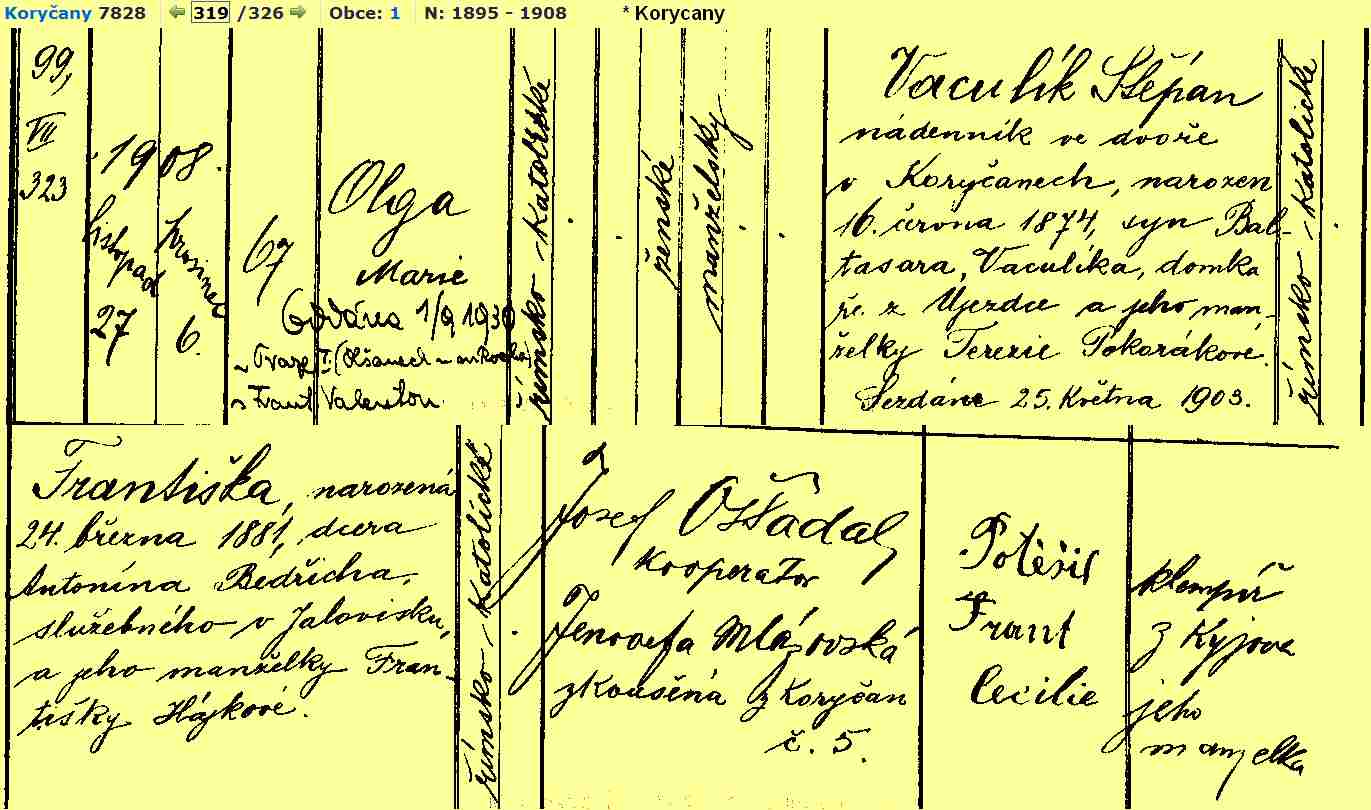 Koryčany 7828 319 /326 Obce: 1 N: 1895 - 1908 * Korycany
99,
VII
323
1908.
listopad
27
prosinec
6.
67
Olga
Marie
Oddána 1/9 1930
v Praze I. (Olšanech
s Frant Valentou
římsko-katolické
ženské
manželský
Vaculík Štěpán
nádenník ve dvoře
v Koryčanech, narozen
16. června 1874, syn Bal-
tasara, Vaculíka, domka
ře z Újezdce a jeho man-
želky Terezie Pokorákové.
Sezdáni 25. Května 1903.
římsko-katolické
Františka, narozená
24. března 1881, dcera
Antonína Bedřicha,
služebného v Jalovisku,
a jeho manželky Fran-
tišky Hájkové.
římsko-katolické
Josef Ošťádal
kooperator
Jenovefa Mlázovská
zkoušená z Koryčan
č. 5.
Potěšil
Frant
Cecilie
klempíř
z Kyjova
jeho
manželka